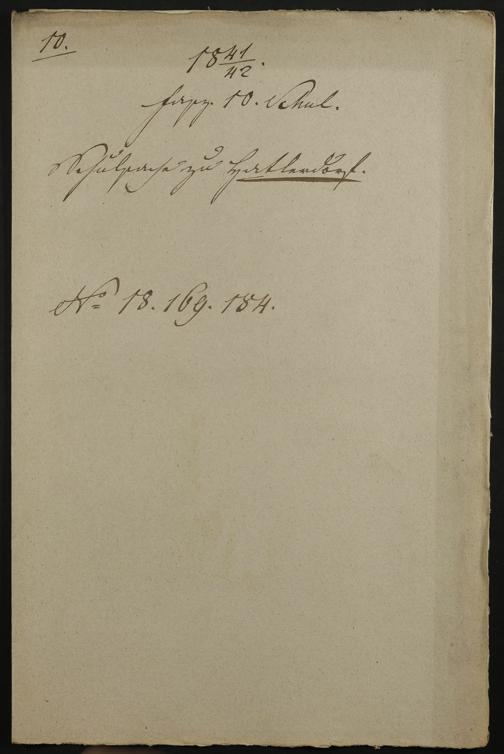 10.
18 41/42.
Fasz. 10. Schul.
Schulsache zu Hatlerdorf.
No 18. 169. 184.